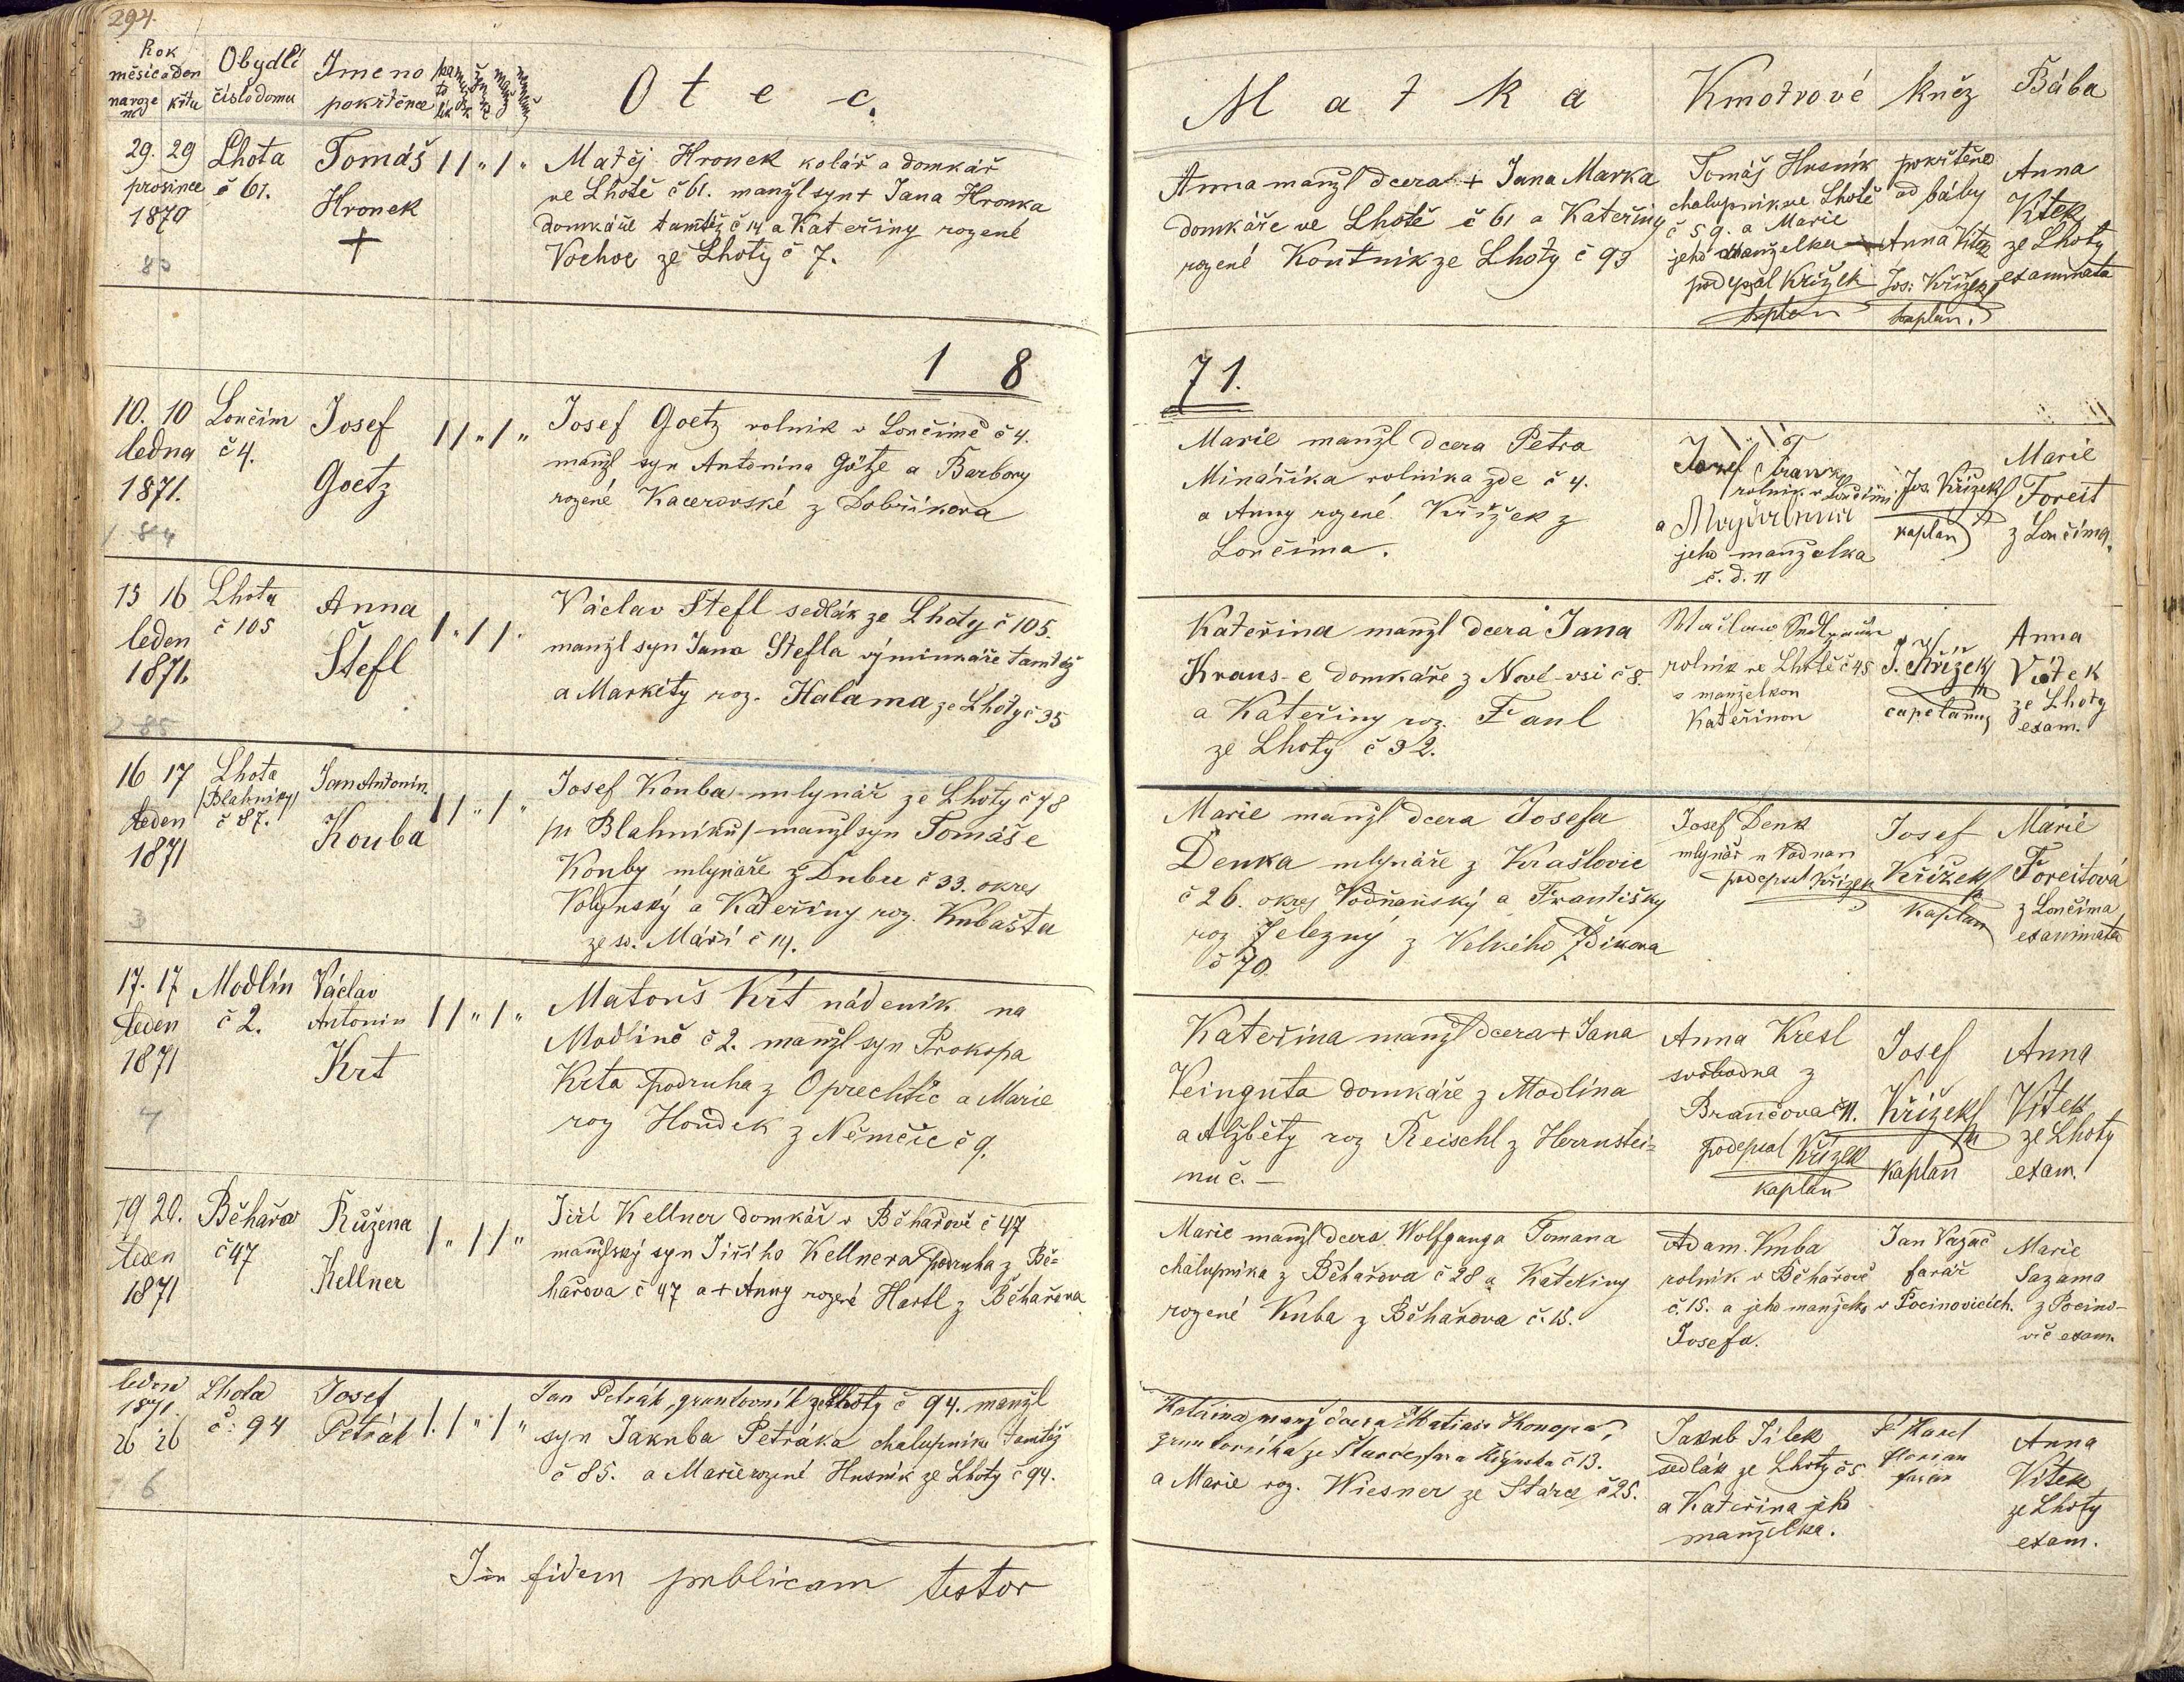 294.
Rok
měsíc a den
naroze
ní
křtu
Obydlí
číslo domu
Jmeno
pokřtěnce
O t e c.
M a t k a
Kmotrové
Kněz
Bába
29. 29
prosince
1870
83
Lhota
č 61.
Tomáš
Hronek
+
Matěj Hronek kolář a domkář
ve Lhotě č 61. manžl syn + Jana Hronka
domkáře tamtéž č 14 a Kateřiny rozené
Vochoc ze Lhoty č 7.
Anna manžl dcera + Jana Marka
domkáře ve Lhotě č 61 a Kateřiny
rozené Koutník ze Lhoty č 93
Tomáš Husník
chalupník ve Lhotě
č 59. a Marie
jeho manželka
podepsal Křížek
kaplan
pokřtěno
od báby
Anna Vítek
Jos. Křížek
kaplan.
Anna
Vítek
ze Lhoty
examinata
1 8
71.
10. 10
ledna
1871.
1 84
Lončim
č 4.
Josef
Goetz
Josef Goetz rolník v Lončimě č 4.
manžl syn Antonína Götze a Barbory
rozené Kacerovské z Dobříkova
Marie manžl dcera Petra
Mináříka rolníka zde č 4.
a Anny rozené Křížek z
Lončima.
Josef
rolník v Lončimi
a
jeho manželka
č. d. 11
Jos. Křížek
kaplan
Marie
Foreit
z Lončima.
15 16
leden
1871.
2 85
Lhota
č 105
Anna
Štefl
Václav Štefl sedlák ze Lhoty č 105.
manžl syn Jana Štefla výminkáře tamtéž
a Markéty roz. Halama ze Lhoty č 35
Kateřina manžl dcera Jana
Kraus-e domkáře z Nové-vsi č 8.
a Kateřiny roz. Faul
ze Lhoty č 32.
rolník ve Lhotě č 45
s manželkou
Kateřinou
J. Křížek
capelanus
Anna
Vítek
ze Lhoty
exam.
16 17
leden
1871
3
Lhota
/Blahníky/
č 87.
Jan Antonín
Kouba
Josef Kouba mlynář ze Lhoty č 78
/u Blahníků/ manžl syn Tomáše
Kouby mlynáře z Dubu č 33. okres
Volynský a Kateřiny roz. Kubašta
ze sv. Máří č 14.
Marie manžl dcera Josefa
Denka mlynáře z Krašlovic
č 26. okres Vodňanský a Františky
roz Železný z Velkého Zdikova
č 70.
Josef Denk
mlynář u Vodnan
podepsal Křížek
Josef
Křížek
kaplan
Marie
Foreitová
z Lončima
examinata
17. 17
leden
1871
4
Modlín
č 2.
Václav
Antonín
Krt
Matouš Krt nádeník na
Modlíně č 2. manžl syn Prokopa
Krta podruha z Oprechtic a Marie
roz Houdek z Němčic č 9.
Kateřina manžl dcera + Jana
Veinguta domkáře z Modlína
a Alžběty roz Reischl z Herrnstei-
nu č. —
Anna Kresl
svobodna z
Brančova č 11.
podepsal Křížek
kaplan
Josef
Křížek
kaplan
Anna
Vítek
ze Lhoty
exam.
19 20.
leden
1871
Běhařov
č 47
Růžena
Kellner
Jiří Kellner domkář v Běhařově č 47
manželský syn Jiřího Kellnera podruha z Bě-
hařova č 47 a + Anny rozené Hartl z Běhařova
Marie manžl dcera Wolfganga Tomana
chalupníka z Běhařova č 28 a Kateřiny
rozené Kuba z Běhařova č. 15.
Adam Kuba
rolník v Běhařově
č. 15. a jeho manželka
Josefa.
Jan Vazač
farář
v Pocinovicích.
Marie
Sazama
z Pocino-
vic exam.
leden
1871.
26 26
6
Lhota
č. 94
Josef
Petrák
Jan Petrák, gruntovník ze Lhoty č 94. manžl
syn Jakuba Petráka chalupníka tamtéž
č 85. a Marie rozené Husník ze Lhoty č 94.
Kateřina, manž dcera Matiase Konopa,
gruntovníka ze č 13.
a Marie roz. Wiesner ze Starce č 25.
Jakub Jílek
sedlák ze Lhoty č 5
a Kateřina jeho
manželka.
P Karel
Florian
farář
Anna
Vítek
ze Lhoty
exam.
In fidem publicam testor